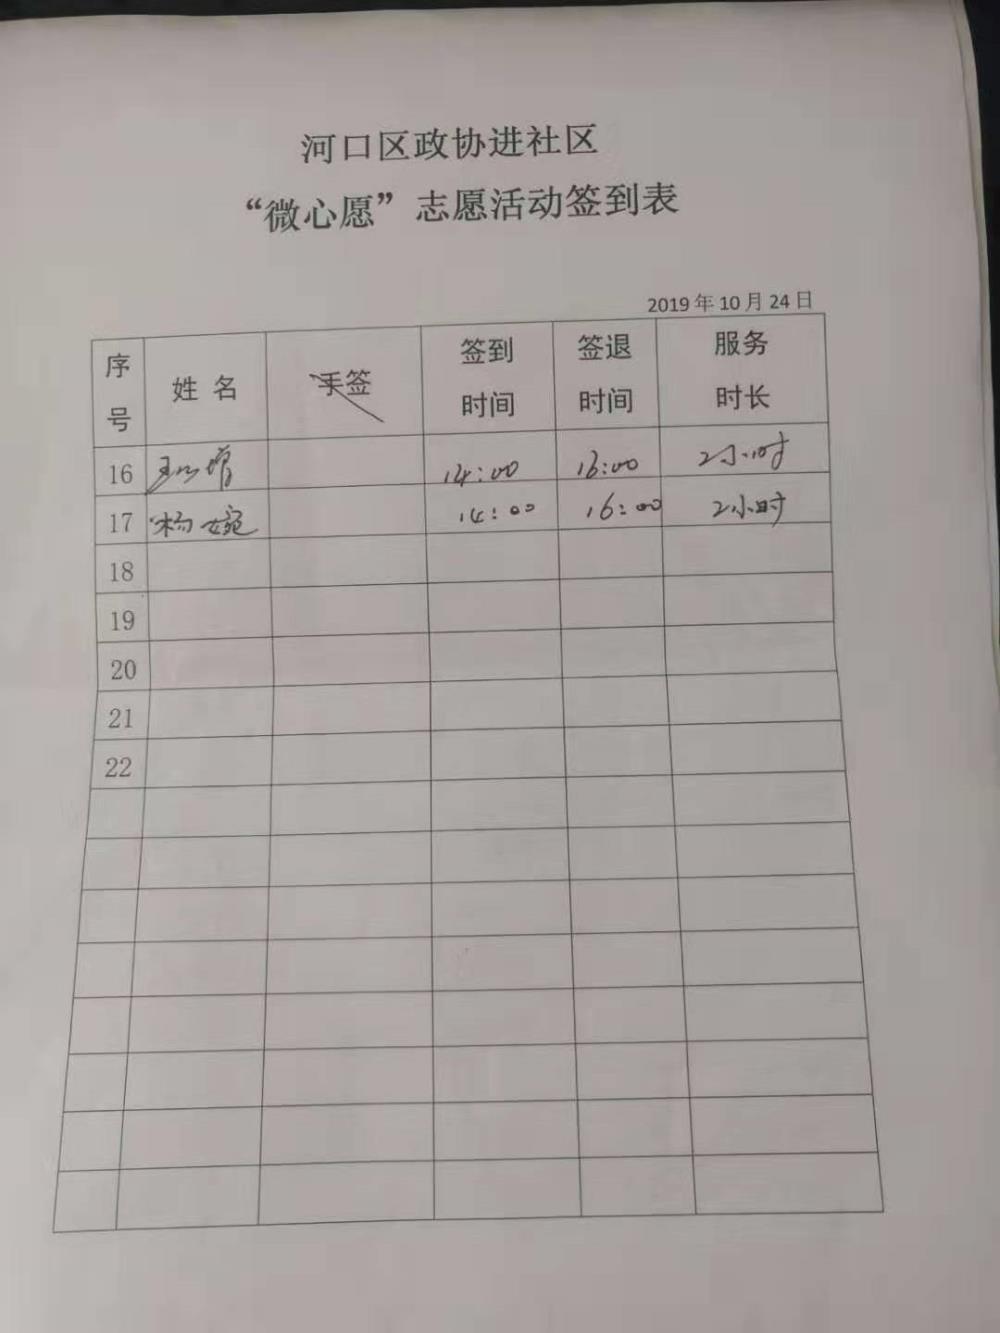 河口区政协进社区
“微心愿”志愿活动签到表
2019年10月24日
序号 姓名 手签 签到时间 签退时间 服务时长
16 14:00 16:00 2小时
17 杨婉 14:00 16:00 2小时
18
19
20
21
22